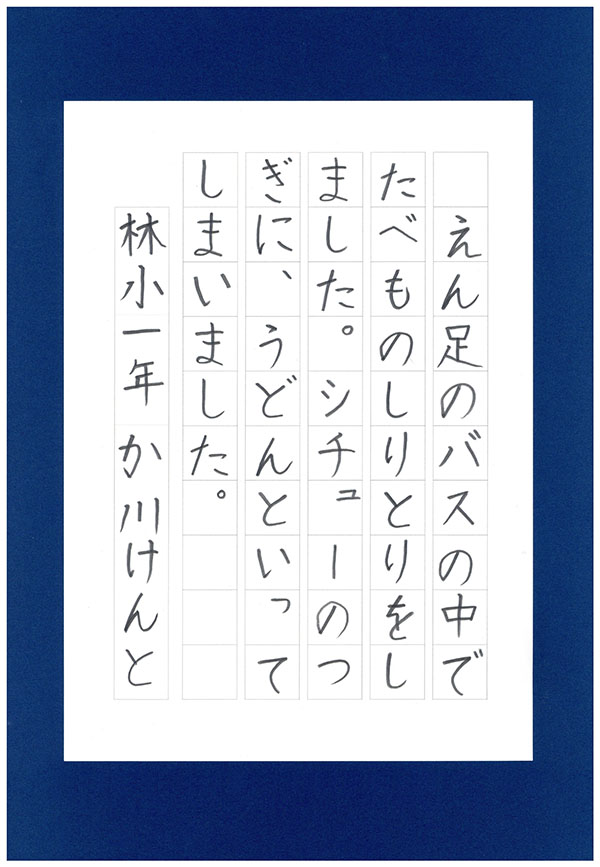 えん足のバスの中で
たべものしりとりをし
ました。シチューのつ
ぎに、うどんといって
しまいました。
林小一年 か川けんと